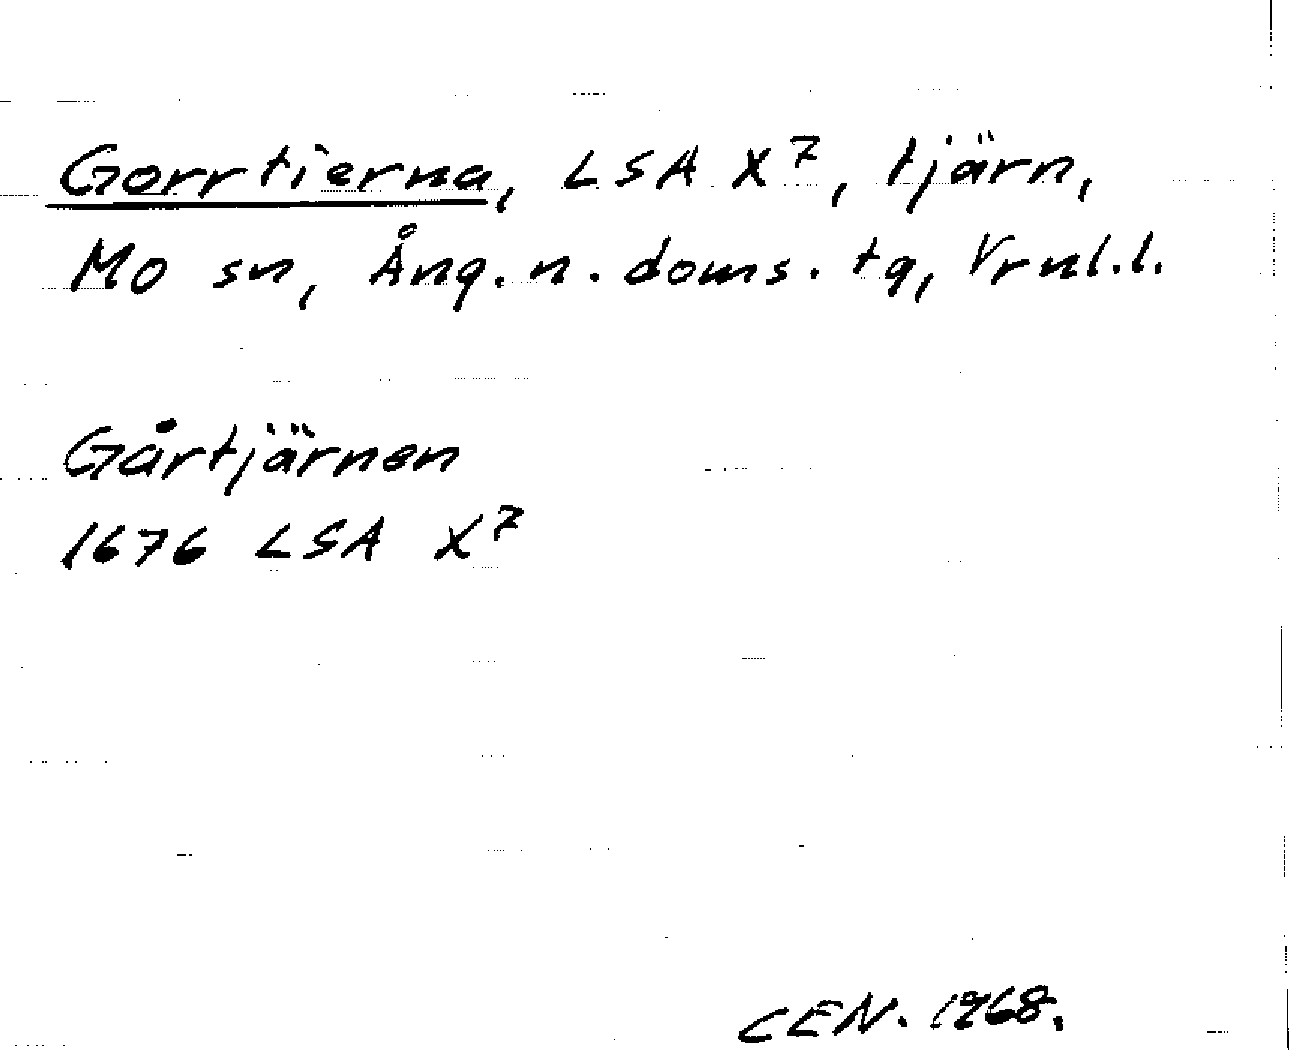 Gorrtierna, LSA X⁷, tjärn,
Mo sn, Ång. n. doms. tg, Vrnl.l.
Gårtjärnen
1676 LSA X⁷
CEN. 1968.